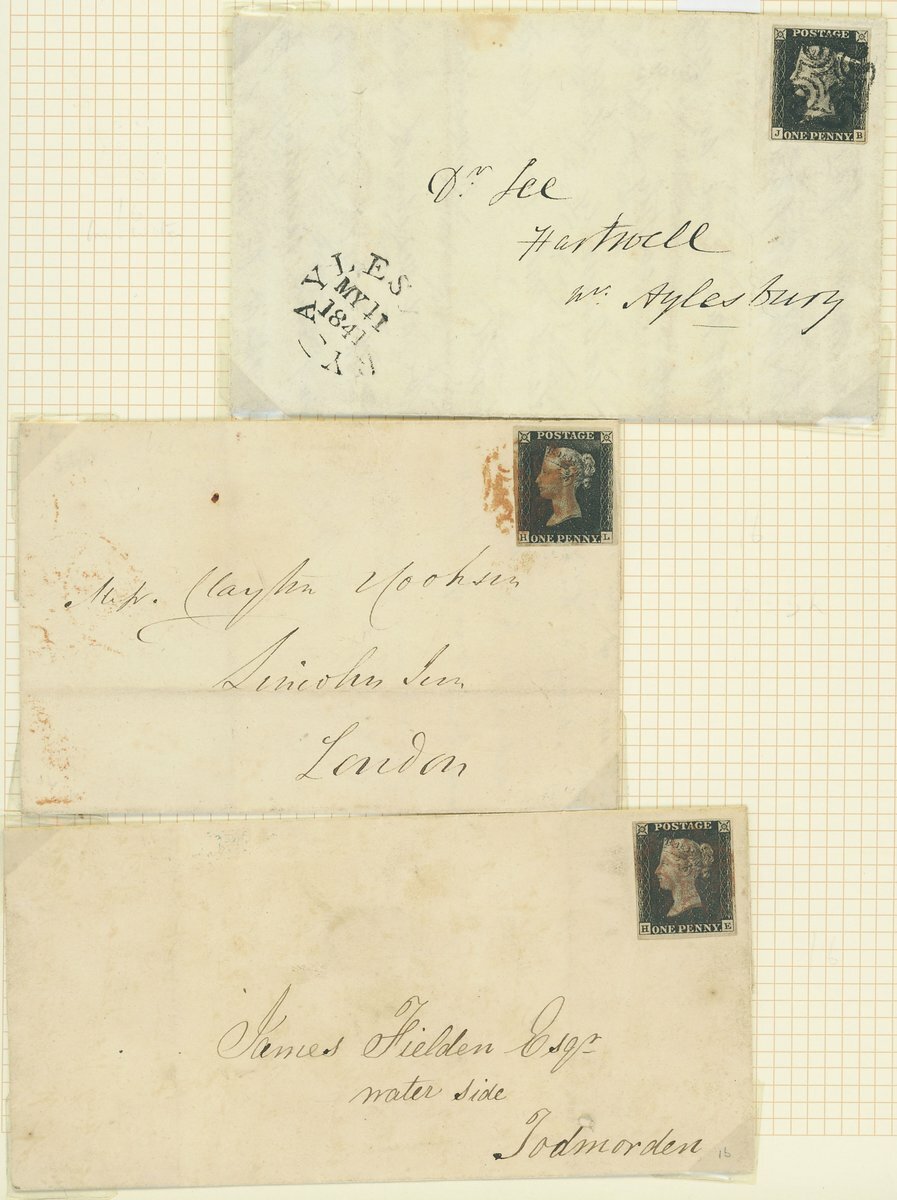 POSTAGE
J ONE PENNY B
Dr. Lee
Hartwell
nr. Aylesbury
AYLES
MY 11
1841
POSTAGE
H ONE PENNY L
Messrs. Clayton Cookson
Lincoln Inn
London
POSTAGE
H ONE PENNY E
James Fielden Esqr
water side
Todmorden
1b